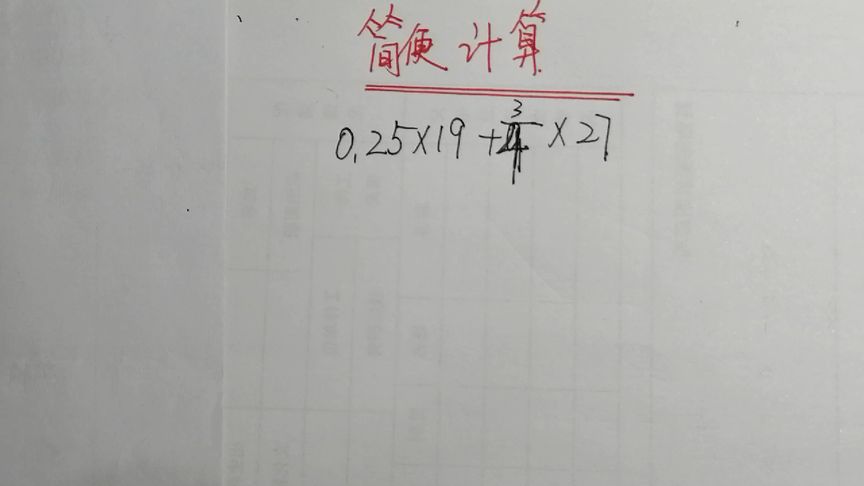 简便计算
0.25×19+3/4×27